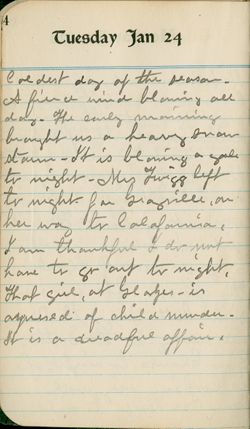 4
Tuesday Jan 24
Coldest day of the season.
A fierce wind blowing all
day. The early morning
brought us a heavy snow
storm - It is blowing a gale
to night - Mrs Twigg left
to night for Grayville, on
her way to California,
I am thankful I do not
have to go out to night,
That girl, at - is
accused of child murder -
It is a dreadful affair,